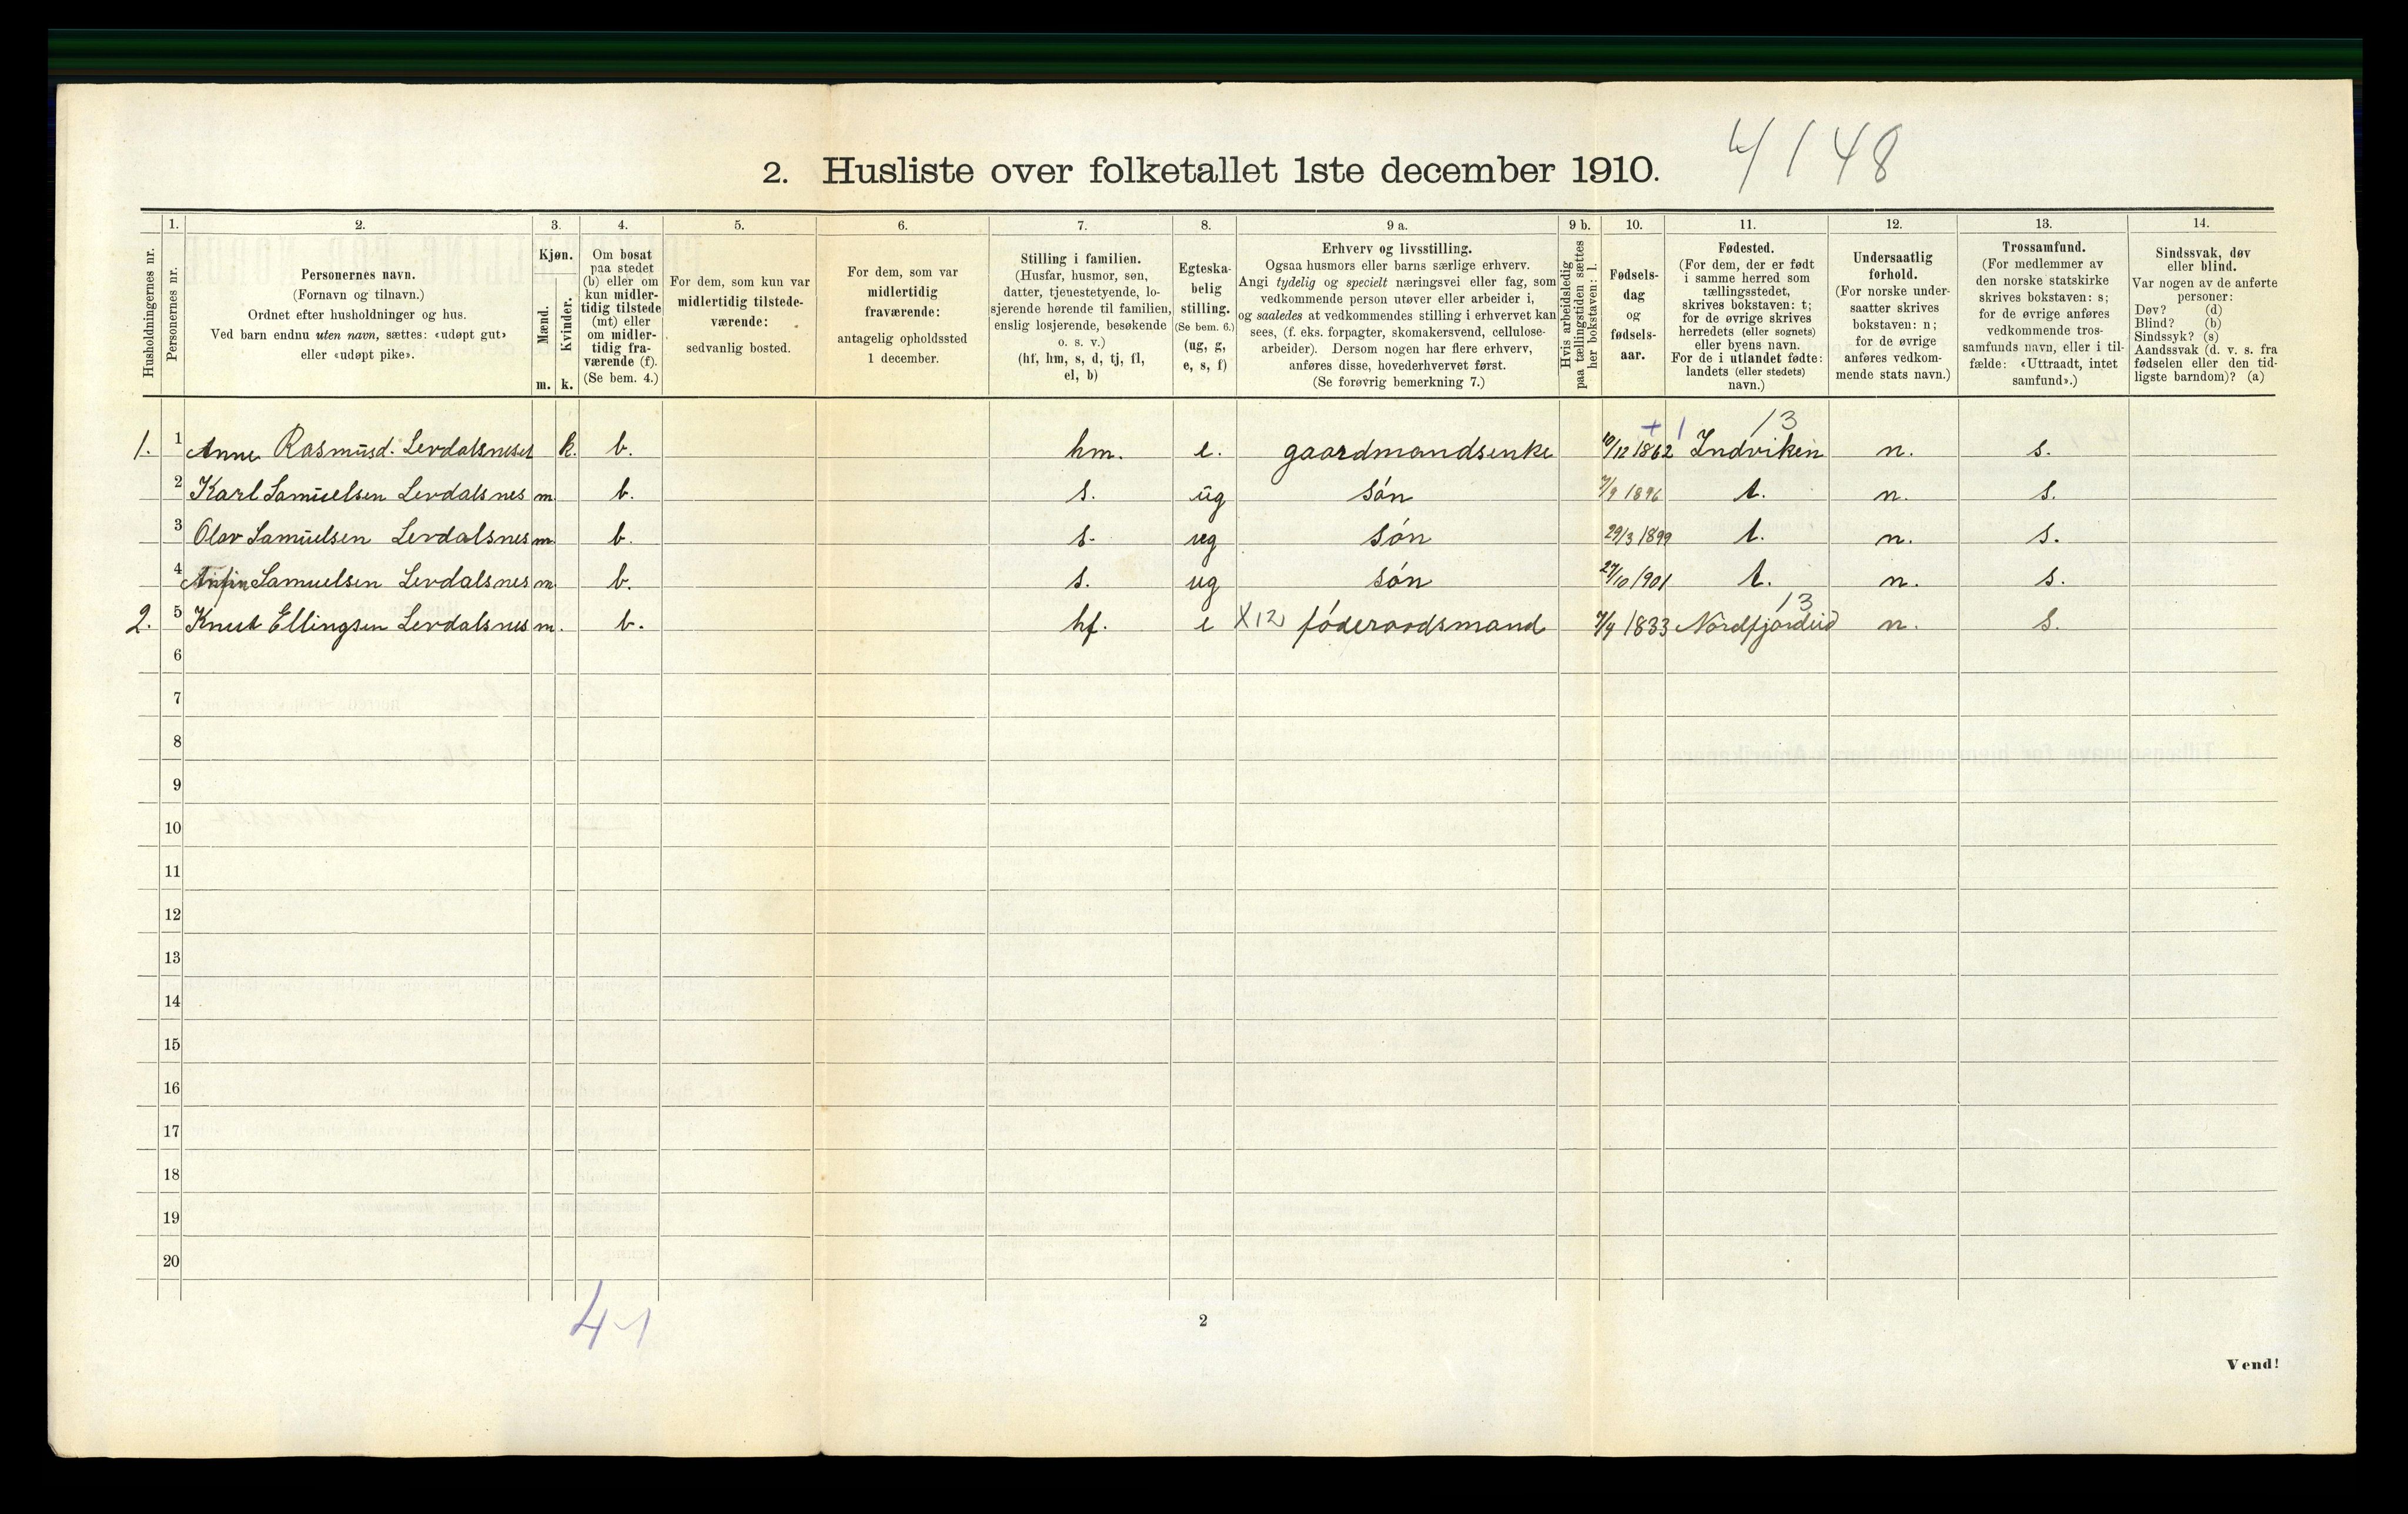 2. Husliste over folketallet 1ste december 1910. 4/148
1. 2. 3. 4. 5. 6. 7. 8. 9 a. 9 b. 10. 11. 12. 13. 14.
Husholdningernes nr.
Personernes nr.
Personernes navn.
(Fornavn og tilnavn.)
Ordnet efter husholdninger og hus.
Ved barn endnu uten navn, sættes: «udøpt gut»
eller «udøpt pike».
Kjøn.
Mænd.
m.
Kvinder.
k.
Om bosat
paa stedet
(b) eller om
kun midler-
tidig tilstede
(mt) eller
om midler-
tidig fra-
værende (f).
(Se bem. 4.)
For dem, som kun var
midlertidig tilstede-
værende:
sedvanlig bosted.
For dem, som var
midlertidig
fraværende:
antagelig opholdssted
1 december.
Stilling i familien.
(Husfar, husmor, søn,
datter, tjenestetyende, lo-
sjerende hørende til familien,
enslig losjerende, besøkende
o. s. v.)
(hf, hm, s, d, tj, fl,
el, b)
Egteska-
belig
stilling.
(Se bem. 6.)
(ug, g,
e, s, f)
Erhverv og livsstilling.
Ogsaa husmors eller barns særlige erhverv.
Angi tydelig og specielt næringsvei eller fag, som
vedkommende person utøver eller arbeider i,
og saaledes at vedkommendes stilling i erhvervet kan
sees, (f. eks. forpagter, skomakersvend, cellulose-
arbeider). Dersom nogen har flere erhverv,
anføres disse, hovederhvervet først.
(Se forøvrig bemerkning 7.)
Hvis arbeidsledig
paa tællingstiden sættes
her bokstaven: l.
Fødsels-
dag
og
fødsels-
aar.
Fødested.
(For dem, der er født
i samme herred som
tællingsstedet,
skrives bokstaven: t;
for de øvrige skrives
herredets (eller sognets)
eller byens navn.
For de i utlandet fødte:
landets (eller stedets)
navn.)
Undersaatlig
forhold.
(For norske under-
saatter skrives
bokstaven: n;
for de øvrige
anføres vedkom-
mende stats navn.)
Trossamfund.
(For medlemmer av
den norske statskirke
skrives bokstaven: s;
for de øvrige anføres
vedkommende tros-
samfunds navn, eller i til-
fælde: «Uttraadt, intet
samfund».)
Sindssvak, døv
eller blind.
Var nogen av de anførte
personer:
Døv? (d)
Blind? (b)
Sindssyk? (s)
Aandssvak (d. v. s. fra
fødselen eller den tid-
ligste barndom)? (a)
+ 1 13
1. 1 Anne Rasmusd. Levdalsneset k. b. hm. e. gaardmandsenke 10/12 1862 Indviken n. s.
2 Karl Samuelsen Levdalsnes m b. s. ug søn 7/9 1896 t. n. s.
3 Olav Samuelsen Levdalsnes m. b. s. ug søn 29/3 1899 t. n. s.
4 Samuelsen Levdalsnes m. b. s. ug søn 27/10 1901 t. n. s.
13
2. 5 Knut Ellingsen Levdalsnes m. b. hf. e X12 føderaadsmand 7/4 1833 Nordfjordeid n. s.
6
7
8
9
10
11
12
13
14
15
16
17
18
19
20
4-1
2
Vend!